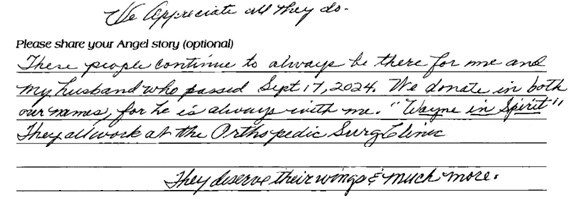 We Appreciate all they do.
Please share your Angel story (optional)
These people continue to always be there for me and
my husband who passed Sept 17, 2024. We donate in both
our names, for he is always with me. "Wayne in Spirit"
They all work at the Orthopedic Surg Clinic
They deserve their wings & much more.